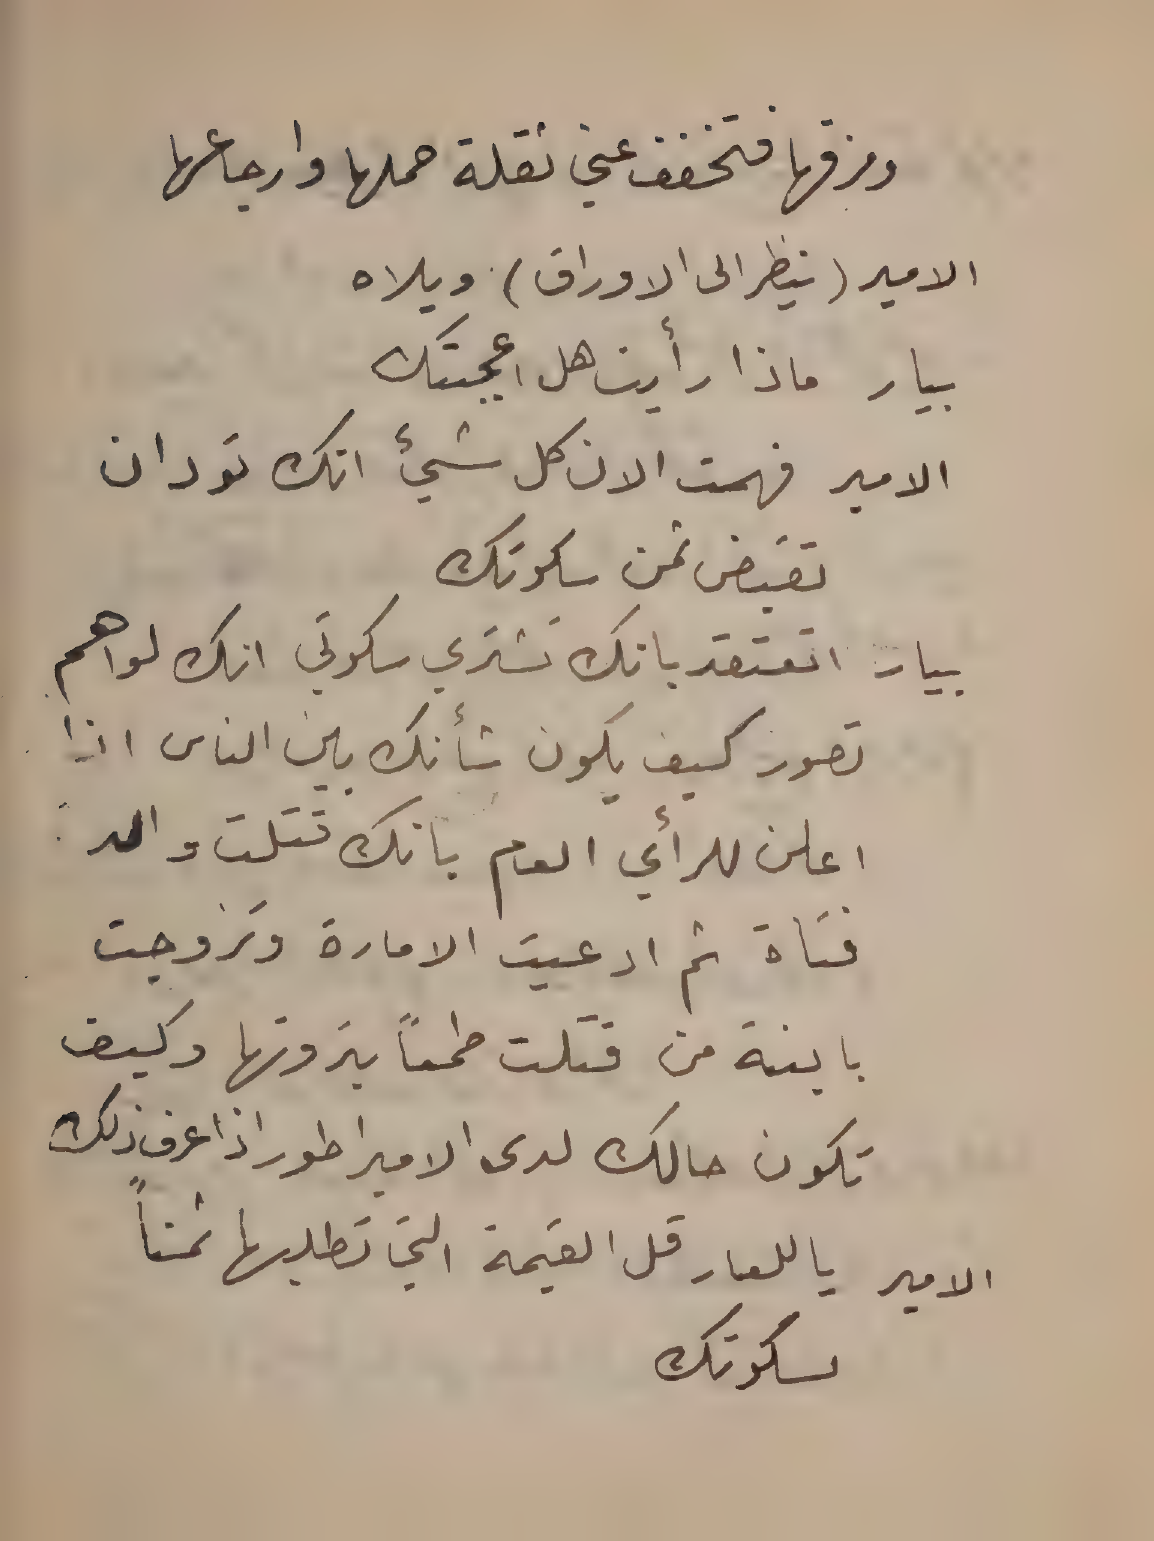 ومزقها فتخفف عني ثقلة حملها وارجاعها
الامير (ينظر الى الاوراق) ويلاه
بيار ماذا رأيت هل اعجبتك
الامير فهمت الان كل شيئ انك تود ان
تقبض ثمن سكوتك
بيار اتعتقد بانك تشتري سكوتي انك لواهم
تصور كيف يكون شأنك بين الناس اذا
اعلن للرأي العام بانك قتلت والد
فتاة ثم ادعيت الامارة وتزوجت
بابنة من قتلت طمعاً بثروتها وكيف
تكون حالك لدى الامبراطور اذا عرف ذلك
الامير يا للعار قل القيمة التي تطلبها ثمناً
لسكوتك